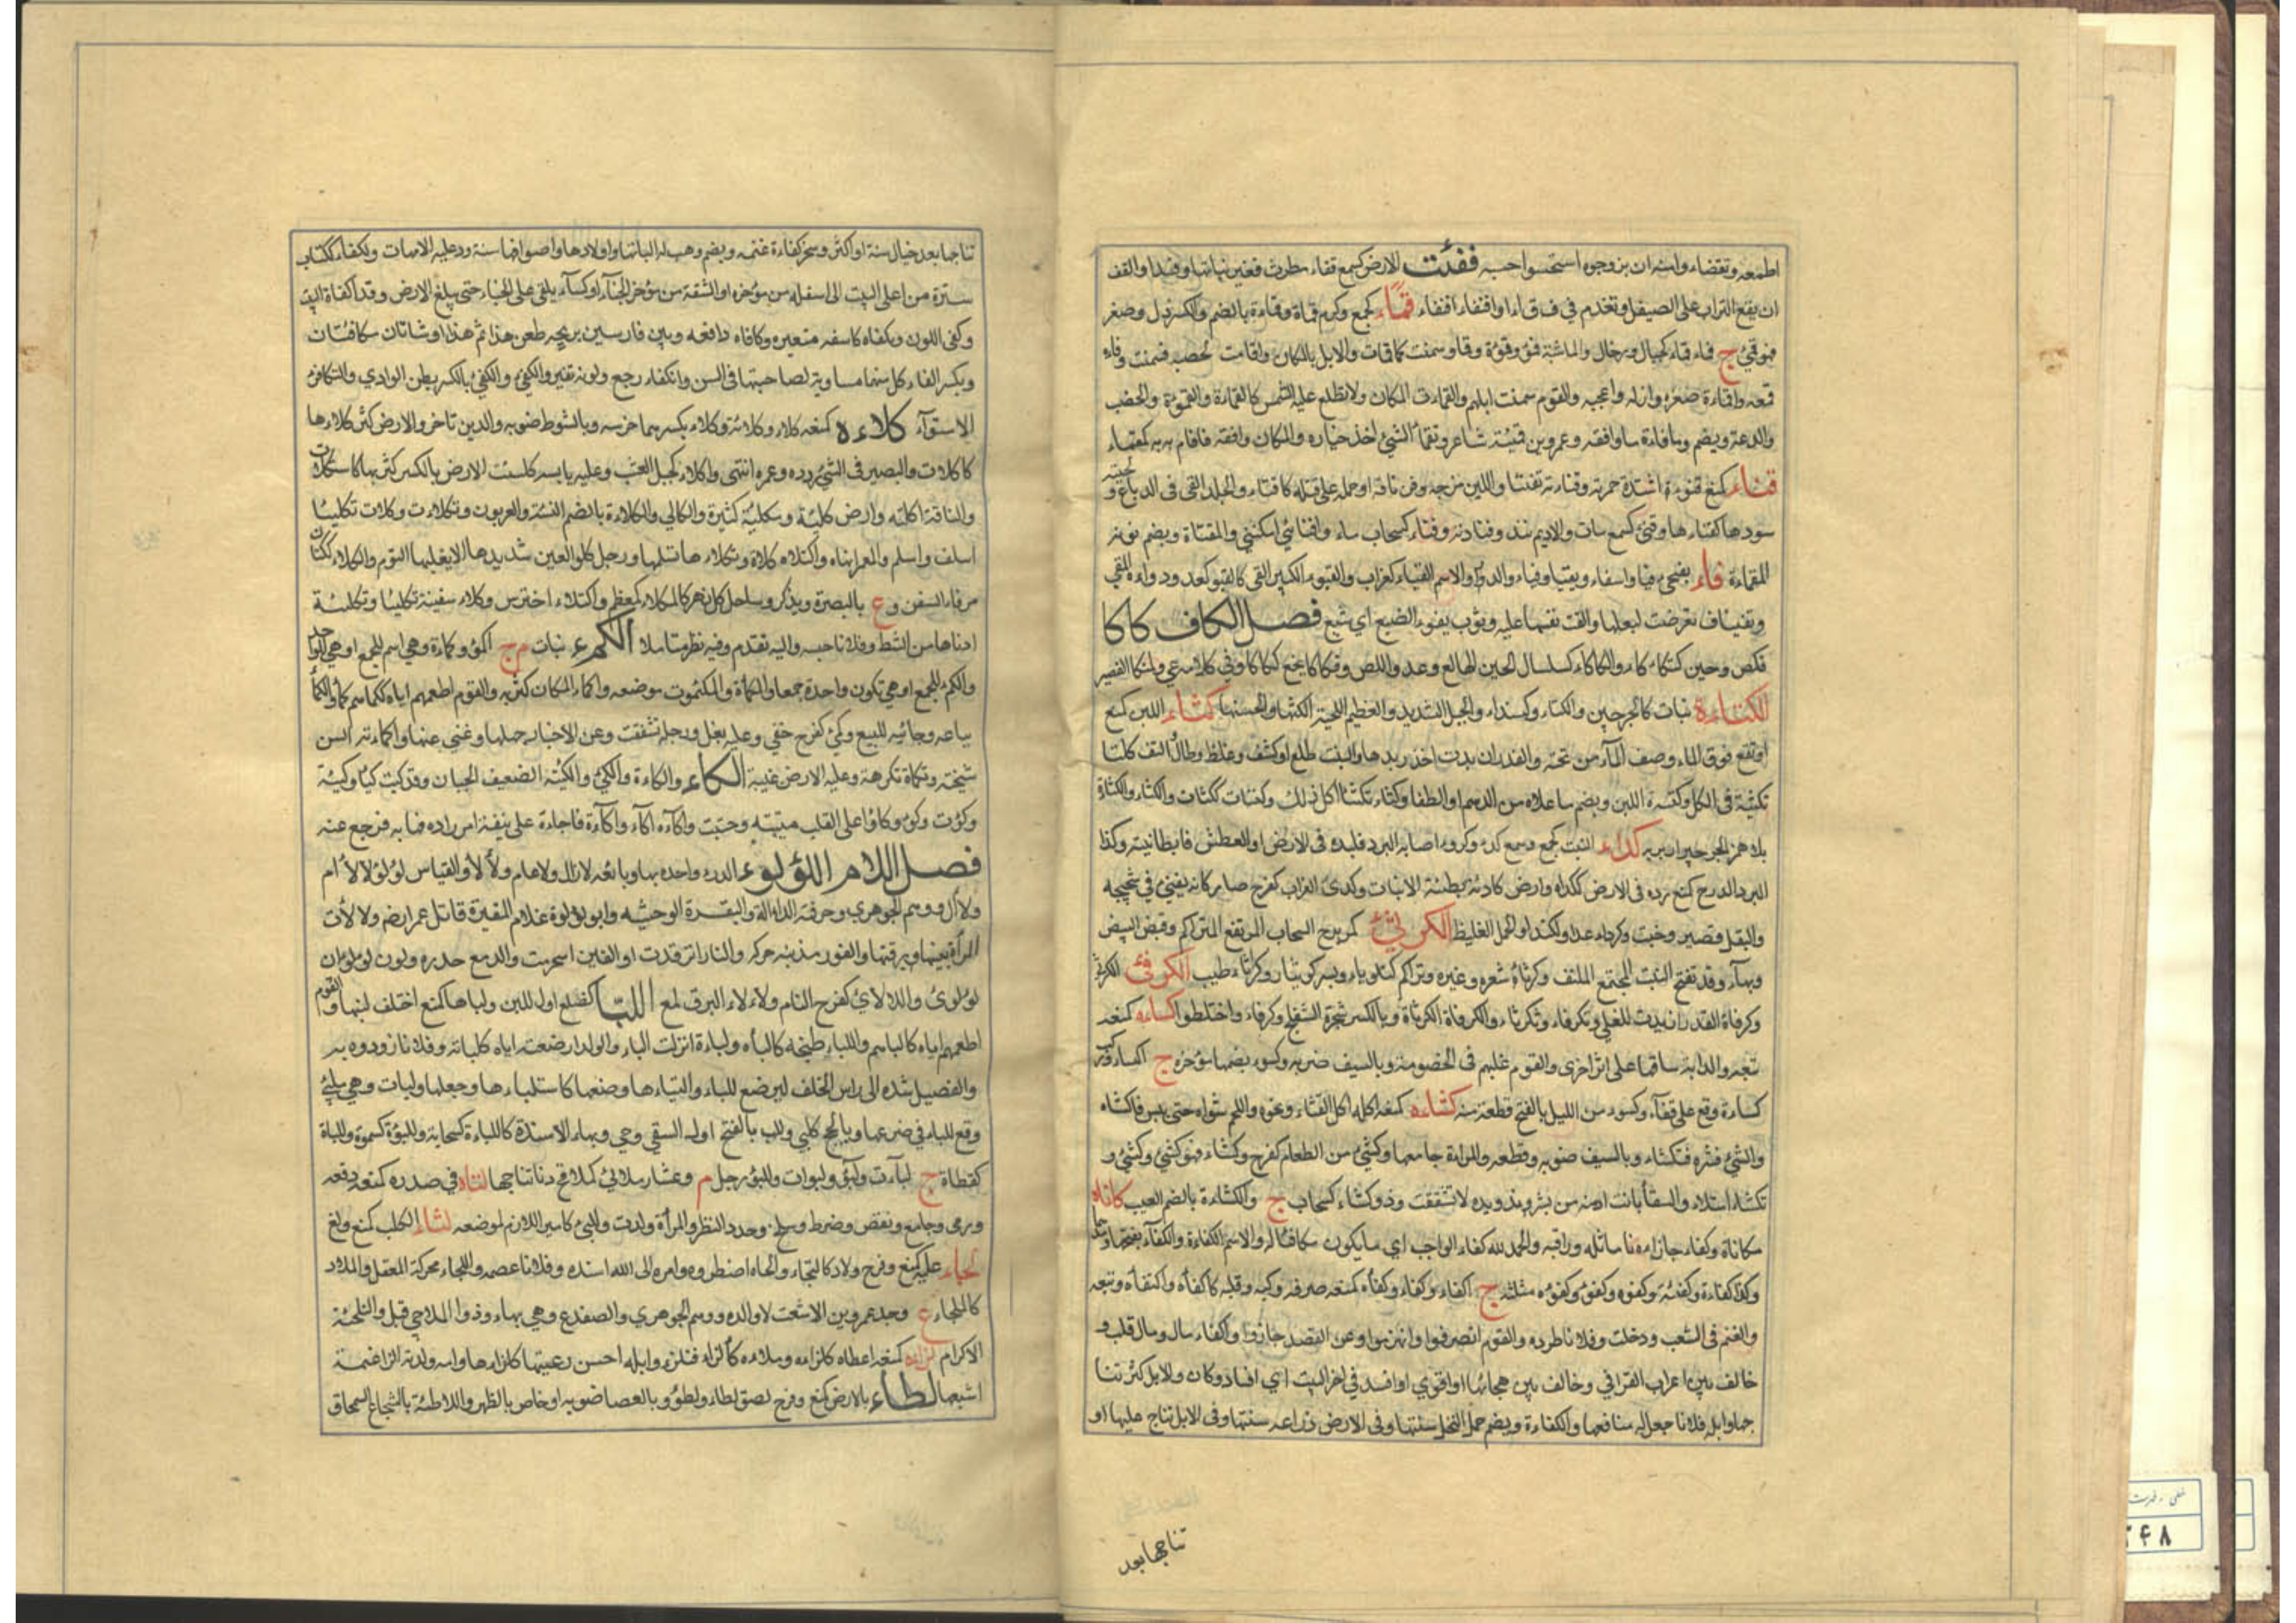 اطعمه وتقضاء وامنه ان يزوجوه استخسوا حسبه ففئت الارض كسمع قفاء مطرت فغير نباتها وفسدا والقف
ان يقع التراب على البقل وتقدم في ف ق اء او اقتفاء اقتفاء قماء كجمع وكرم قماة وقماءة بالضم والكسر ذل وصغر
فهو قمئ ج قماء قماء كجبال ورخال والماشية قمؤ وقموة وقما وسمنت كاقمات والابل بالمكان واقامت لخصبه فسمنت وقماه
قمعه واقماءة صغره واذله واعجبه والقوم سمنت ابلهم والقماءت المكان ولا تطلع عليه الشمس كالقماءة والقموءة والخصب
والدعة ويضم وما قاماه ما وافقه وعمرو بن قميئة شاعر وتقما الشيئ اخذ خياره والمكان وافقه فاقام به كقماء
قناء كمنع قنوءة اشتدة حمرته وقناءته تقنئا واللبن مزجه وفلانا قتله او حمله على قتله كاقناء والجلد القي في الدباغ و
سودها كقناءها وقنئ كسمع مات والاديم فسد وقناءته وقناء كسحاب ماء واقنائي امكنني والمقناة ويضم نونه
المقماءة قاء يقيئ قيا واسقاء ويقيا وقياء والدوا والاسم القياء كغراب والقيوء الكثير القي كالقيو كعدو ودواءه المقي
وتقيات تعرضت لبعلها والقت نفسها عليه وثوب يقوء الصبغ اي شبع فصل الكاف كاكا
نكص وجبن كتكاكاء والكاكاء كسلسال الجبن الهالع وعدو اللص وتكاكا تجمع ككاكا وفي كلامه عي والمتكاكا القصير
الكتاءة نبات كالجرجير والكنتاء وكسنداء والجبل الشديد والعظيم اللحية الكثها والحسنها كثاء اللبن كمنع
ارتفع فوق الماء وصف الماء من تحته والقدر ان بدت اخذ زبدها والنبت طلع او كثف وغلظ وطال التف كلثا
تكثئة في الكل وكثئة اللبن ويضم ما علاه من الدسم او الطفا وكثاء تكثئا اكل ذلك وكثات ككثات والكثاء والكثاة
بلا همز الجرجير او بريه كداء النبت كجمع وسمع كدء وكدوء اصابه البرد فلبده في الارض او العطش فابطا نبته وكذا
البرد الزرع كمنع رده في الارض ككداه وارض كادئة بطيئة الانبات وكدئ الغراب كفرح صار كانه يقيئ في شحيجه
والبقل قصير وخبث وكوداء عدا والكنداو الجمل الغليظ الكرثئ كزبرج السحاب المرتفع المتراكم وقيض البيض
وبهاء وقد تفتح النبت المجتمع الملتف وكرثاة شعره وغيره وتراكم كتكرثاء وبسر كريثاء وكراثاء طيب الكرفئ الكرثئ
وكرفاة القدر ازبدت للغلي وتكرفاء وتكرثاء والكرفاة الكرثاة وبالكسر شجرة الشفلح وكرفاء واختلطوا كساءه كمنعه
تبعه والدابة ساقها على اثر اخرى والقوم غلبهم في الخصومة وبالسيف ضربه وكسوء بضمها مؤخره ج اكساء وركب
كساءة وقع على قفاء وكسوء من الليل بالفتح قطعة منه كشاءه كمنعه اكله اكل القثاء ونحوه واللحم شواه حتى يبس فاكشاه
والشئ قشره فتكشاء وبالسيف ضربه وقطعه والمراءة جامعها وكشئ من الطعام كفرح وكشاء فهو كشئ وكشئ و
تكشاء امتلاء والسقاء بانت ادمته من بشرته ويده لا تشققت وذو كشاء كسحاب ج والكشاءة بالضم العيب كافاه
مكافاة وكفاء جازاه وفلانا ماثله وراقبه والحمد لله كفاء الواجب اي ما يكون مكافئا له والاسم الكفاءة والكفاء بفتحهما ومدهما
وكذا كفاءة وكفئة وكفوء وكفو وكفوه مثلثه ج اكفاء وكفاء وكفاه كمنعه صرفه وكبه وقلبه كاكفاه واكتفاه وتبعه
والغنم في الشعب ودخلت وفلانا طرده والقوم انصرفوا وانهزموا وعن القصد جازوا واكفاء مال ومال قلب و
خالف بين اعراب القوافي وخالف بين هجائها او اقوي او افسد في اخر البيت اي افساد كان والابل كثر نتا
جها وابله فلانا جعل له منافعها والكفاءة ويضم حمل النخل سنتها وفي الارض زراعة سنتها وفي الابل نتاج عليها او
تناجها بعد
تناجها بعد حيال سنة او اكثر ومنحه كفاءة غنمه ويضم وهب له البانها واولادها واصوافها سنة ورد عليه الامهات والكفاء ككتاب
سترة من اعلى البيت الى اسفله من مؤخره او الشقة من مؤخر الخباء او كساء يلقى على الخباء حتى يبلغ الارض وقد اكفاة البيت
وكفى اللون ومكفاه كاسفه متغيره وكافاه دافعه وبين فارسين برمحه طعن هذا ثم هذا وشاتان مكافئتان
وبكسر الفاء كل منهما مساوية لصاحبتها في السن وانكفاء رجع ولونه تغير والكفئ والكفئ بالكسر بطن الوادي والتكافؤ
الاستواء كلاءه كمنعه كلاء وكلاءة وكلاء بكسرهما حرسه وبالسوط ضربه والدين تاخر والارض كثر كلاءها
كاكلات والبصير في الشئ ردده وعمره انتهى والكلاء كجبل العشب وعليه يابسه كلئت الارض بالكسر كثر بها كاستكلات
والناقة اكلته وارض كليئة ومكلئة كثيرة والكالي والكلاءة بالضم النسئة والعربون وتكلاءت وكلات تكليئا
اسلف واسلم والعمر انهاه واكتلاه كلاة وتكلاءها تسلمها ورجل كلوء العين شديدها لا يغلبها النوم والكلاء ككتان
مرفاء السفن وع بالبصرة ويذكر وساحل كل نهر كالمكلاء كمعظم واكتلاء احترس وكلاء سفينة تكليئا وتكلئة
ادناها من الشط وفلانا حبسه واليه تقدم وفيه نظر متاملا الكمء نبات م ج اكمؤ وكماءة وهي اسم للجمع او هي للواحد
والكمء للجمع او هي تكون واحدة وجمعا والمكماة والمكموءة موضعه واكماء المكان كثر به والقوم اطعمهم اياه ككماءهم كماء والكماء
بياعه وجانيه للبيع وكمئ كفرح حفي وعليه نعل ورجله تشققت وعن الاخبار جهلها وغبي عنها واكماءته السن
شيخته وتكماة تكرهه وعليه الارض غيبة الكاء والكاءة والكئ والكيئة الضعيف الجبان وقد كئت كيئا وكيئة
وكؤت وكؤء وكاؤا على القلب هبته وجبنت واكآءه اكآء واكآءة فاجاءة على تئفة امر اراده فهابه فرجع عنه
فصل اللام اللؤلوء الدر واحده بهاء وبائعه لآال ولاءء ولأ لأ والقياس لؤلؤ لا لأ ام
ولاأل ووهم الجوهري وحرفته اللئالة والبقرة الوحشيه وابو لؤلوة غلام المغيرة قاتل عمر رضه ولالأت
المرأة بعينها وبرقتها والفور بذنبه حركه والنار اتوقدت او العنز استحرمت والدمع حدره ولون لولوان
لؤلؤي واللالاي كفرح التام ولاءلاء البرق لمع اللبأ كضلع اول اللبن ولباها كمنع احتلب لبنها والقوم
اطعمهم اياه كالباهم واللباء طبخه كالبأه ولباءة انزلت البا والولد ارضعته اياه كلبائه وفلانا زودوه به
والفصيل شده الى راس الخلف ليرضع اللباء والتباءها رضعها كاستلباءها وجعلها ولبات وهي ملبئ
وقع اللباء في ضرعها وبالحج كلبي واللب بالفتح اول السقي وحي وبهاء الاسدة كاللباءة كسحابة واللبوة كسموة واللباة
كقطاة ج لباءت ولبؤ ولبوات واللبؤ رجل م وعشار ملابئ كملاقح دنا نتاجها لتاه في صدره كمنعه دفعه
ورمى وجامع ونقص وضرط وسلح وحدد النظر والمرأة ولدت واللتئ كاميراللازم لموضعه لثاء الكلب كمنع ولغ
لجاء عليه كمنع وفرح ولاذ كالتجاء والجاه اضطره وامره الى الله اسنده وفلانا عصمه واللجاء محركة المعقل والملاذ
كالملجاء ع وجد عمرو بن الاشعت لا والده ووهم الجوهري والصفدع وهي بهاء وذو الملاجي قيل والتلجئة
الاكراه لزاءه كمنعه اعطاه كلزاءه وملاءه كالزاه فلزء وابله احسن رعيتها كلزاءها وامه ولدته الزا غنمه
اشبعها لطاء بالارض كمنع وفرح لصق لطاء ولطوء وبالعصا ضربه او خاص بالظهر واللاطئة بالشجاج السمحاق